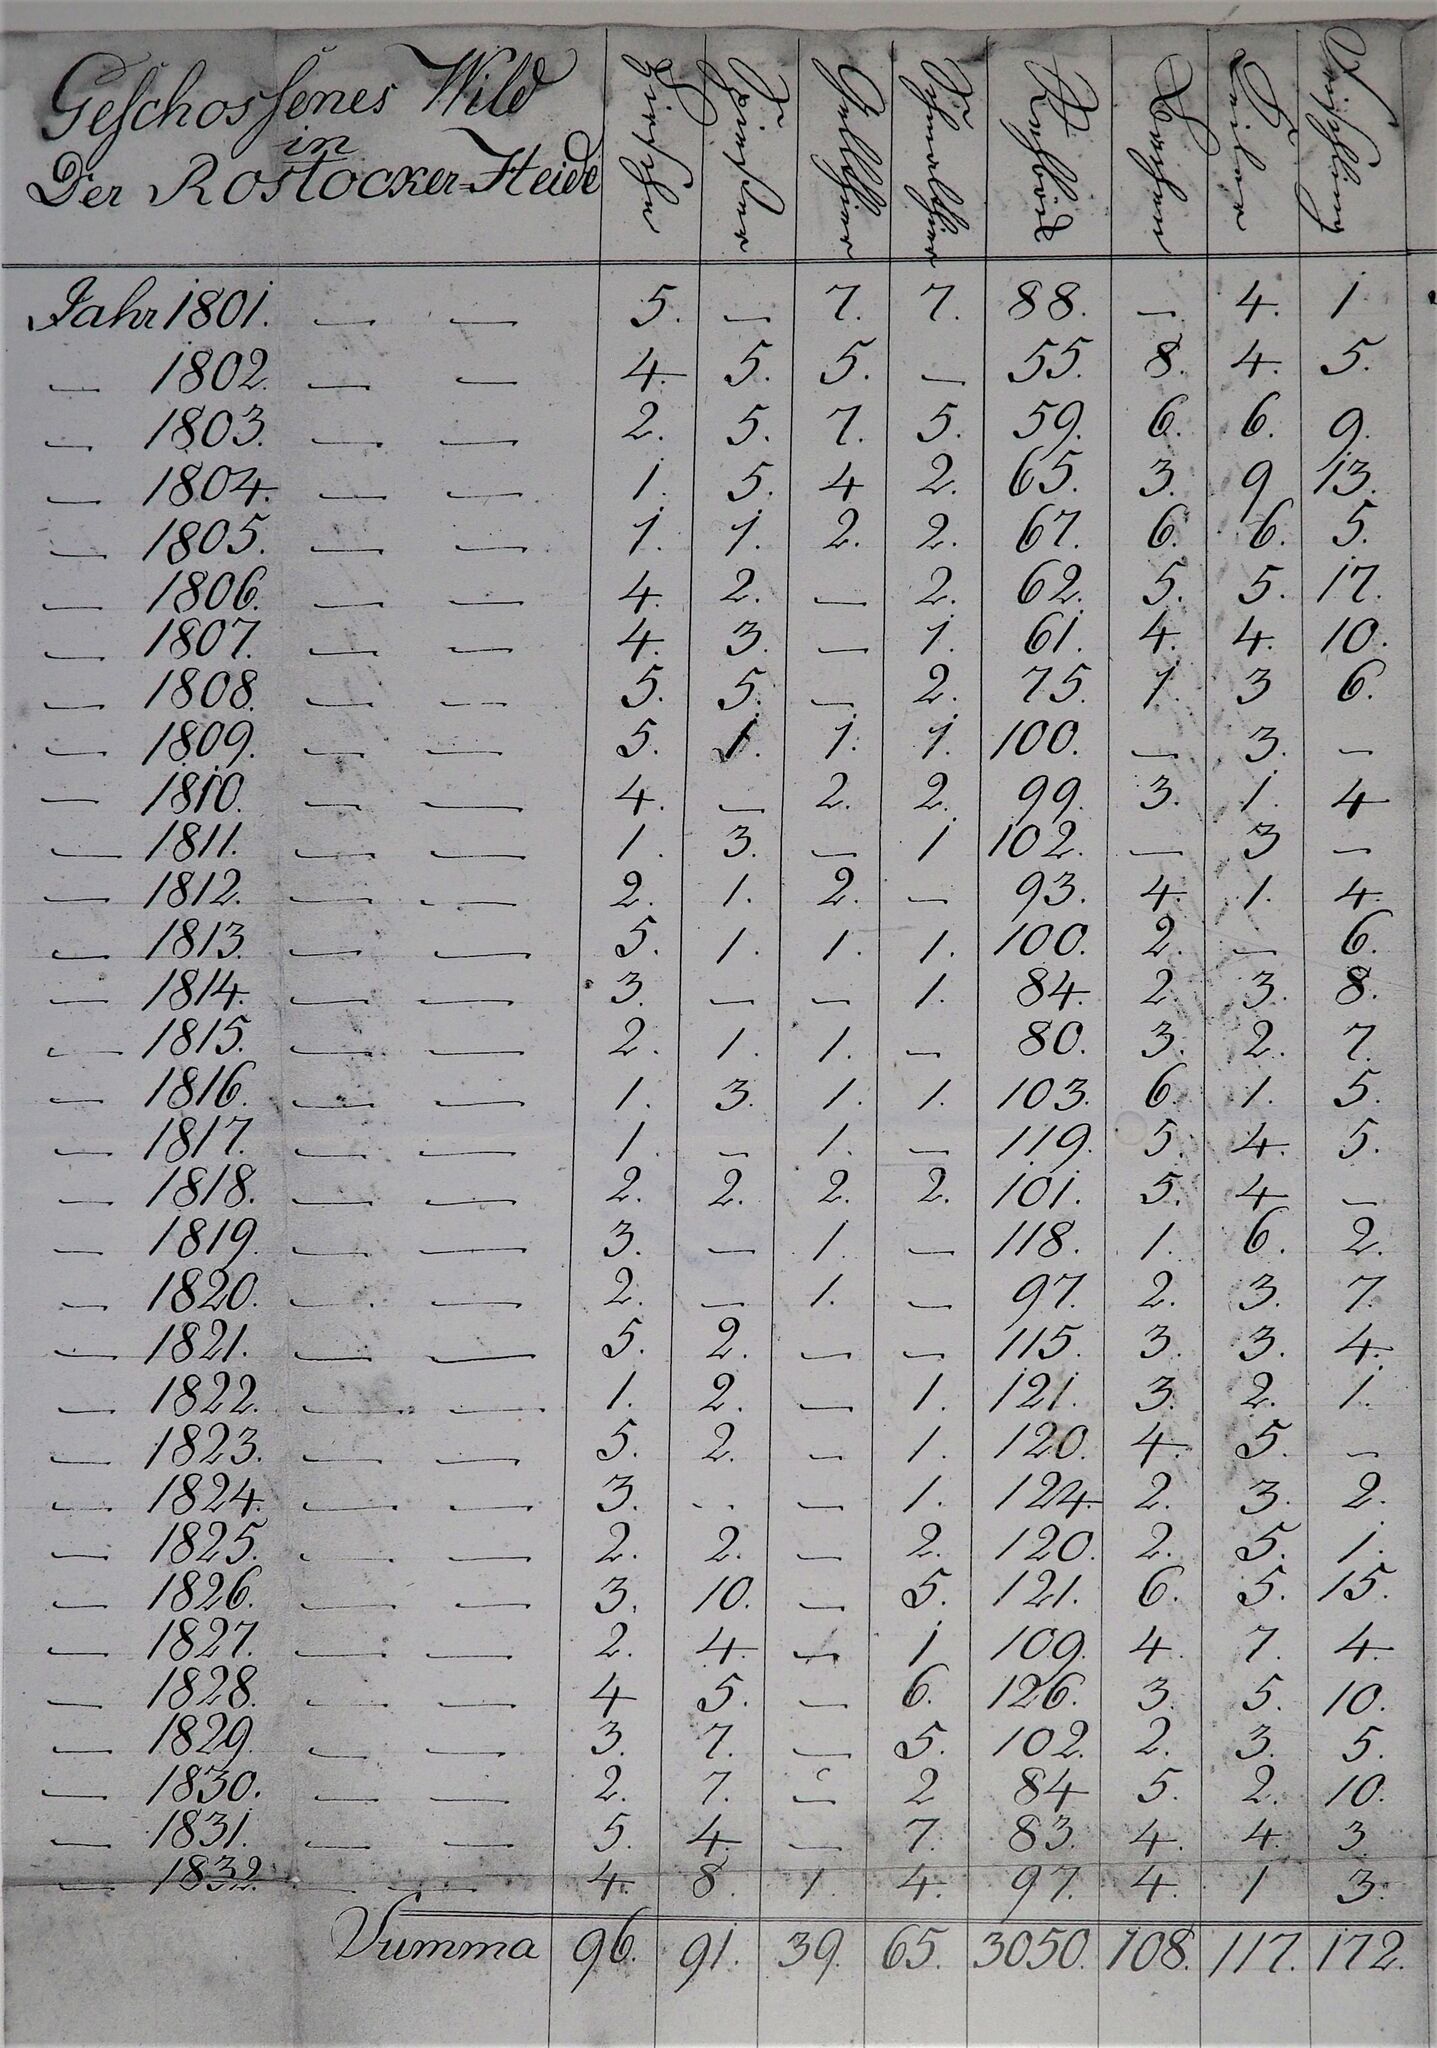 Geschossenes Wild
in
Der Rostocker-Heide
Hirsche Spiesser Geltthier Schmalthier Rehböcke Bachen Keiler Frischling
Jahr 1801. — — 5. — 7. 7. 88. — 4. 1
— 1802. — — 4. 5. 5. — 55. 8. 4. 5.
— 1803. — — 2. 5. 7. 5. 59. 6. 6. 9.
— 1804. — — 1. 5. 4 2. 65. 3. 9 13.
— 1805. — — 1. 1. 2. 2. 67. 6. 6. 5.
— 1806. — — 4. 2. — 2. 62. 5. 5. 17.
— 1807. — — 4. 3. — 1. 61. 4. 4. 10.
— 1808. — — 5. 5. — 2. 75. 1. 3 6.
— 1809. — — 5. 1. 1. 1. 100. — 3. —
— 1810. — — 4. — 2. 2. 99. 3. 1. 4
— 1811. — — 1. 3. — 1 102. — 3 —
— 1812. — — 2. 1. 2. — 93. 4. 1. 4.
— 1813. — — 5. 1. 1. 1. 100. 2. — 6.
— 1814. — — 3. — — 1. 84. 2 3. 8.
— 1815. — — 2. 1. 1. — 80. 3. 2. 7.
— 1816. — — 1. 3. 1. 1. 103. 6. 1. 5.
— 1817. — — 1. — 1. — 119. 5. 4. 5.
— 1818. — — 2. 2. 2. 2. 101. 5. 4 —
— 1819. — — 3. — 1. — 118. 1. 6. 2.
— 1820. — — 2. — 1. — 97. 2. 3. 7.
— 1821. — — 5. 2. — — 115. 3. 3. 4.
— 1822. — — 1. 2. — 1. 121. 3. 2. 1.
— 1823. — — 5. 2. — 1. 120. 4. 5. —
— 1824. — — 3. — — 1. 124. 2. 3. 2.
— 1825. — — 2. 2. — 2. 120. 2. 5. 1.
— 1826. — — 3. 10. — 5. 121. 6. 5. 15.
— 1827. — — 2. 4. — 1 109. 4. 7. 4.
— 1828. — — 4 5. — 6. 126. 3. 5. 10.
— 1829. — — 3. 7. — 5. 102. 2. 3. 5.
— 1830. — — 2. 7. — 2 84 5. 2. 10.
— 1831. — — 5. 4. — 7. 83. 4. 4. 3
— 1832. — — 4. 8. 1. 4. 97. 4. 1 3.
Summa 96. 91. 39. 65. 3050. 108. 117. 172.